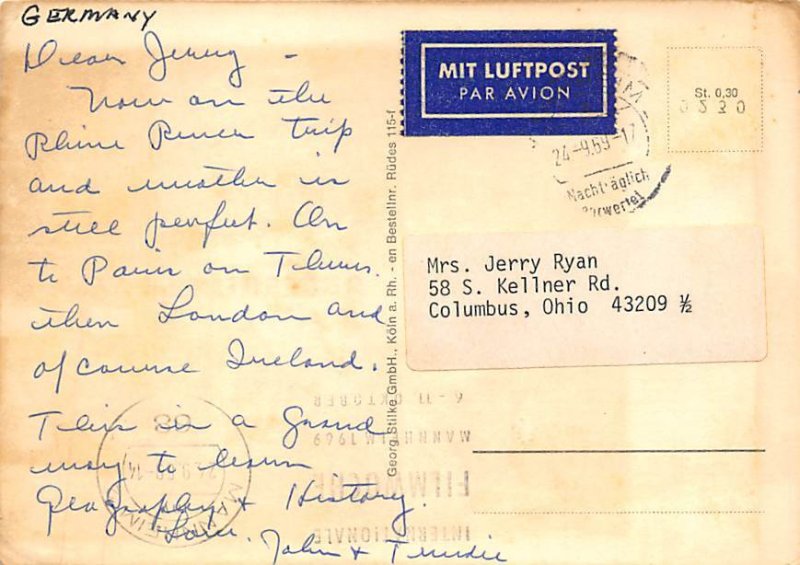 GERMANY
Dear Jerry -
Now on the
Rhine River trip
and weather is
still perfect. On
to Paris on Thurs.
then London and
of course Ireland.
This is a grand
way to learn
Geography + History.
Love.
John + Trudie
Georg Stilke GmbH., Köln a. Rh. - en Bestellnr. Rüdes 115-f
MIT LUFTPOST
PAR AVION
24-9.69-17
Nachträglich
entwertet
St. 0,30
9230
Mrs. Jerry Ryan
58 S. Kellner Rd.
Columbus, Ohio 43209 ½
MANNHEIM
24.9.69-14
6 - 11 OKTOBER
MANNHEIM 1969
FILMWOCHE
INTERNATIONALE